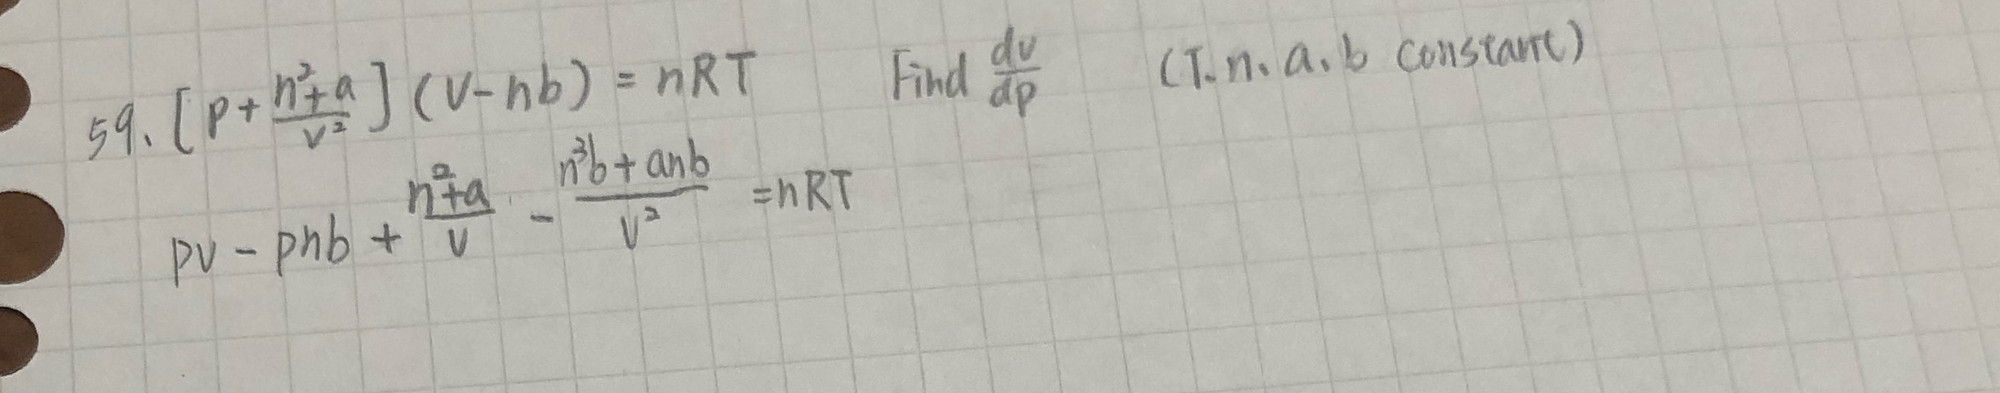 59. [P + (n²+a)/v²] (v-nb) = nRT Find dv/dp (T. n. a. b constant)
pv - pnb + (n²+a)/v - (n³b + anb)/v² = nRT